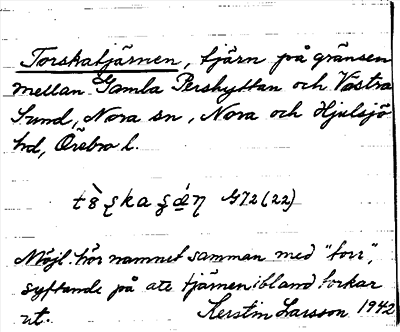 Torskatjärnen, tjärn på gränsen
mellan Gamla Pershyttan och Västra
Sund, Nora sn, Nora och Hjulsjö
hd, Örebro l.
G72(22)
Möjl. hör namnet samman med "torr",
syftande på att tjärnen ibland torkar
ut. Kerstin Larsson 1942